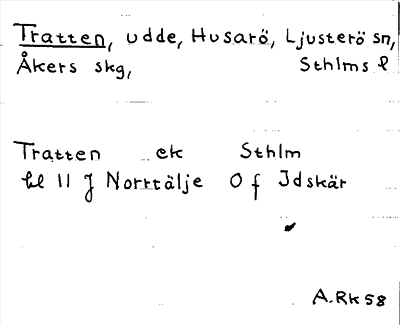 Tratten, udde, Husarö, Ljusterö sn,
Åkers skg, Sthlms l
Tratten ek Sthlm
bl 11 J Norrtälje O f Idskär
A.Rk 58